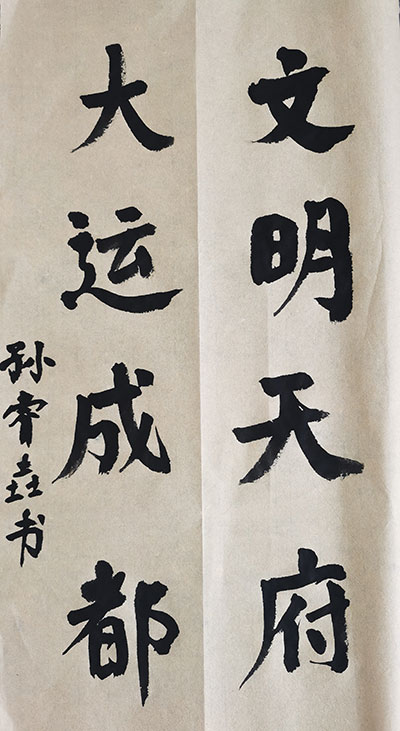 文明天府
大运成都
孙垚书